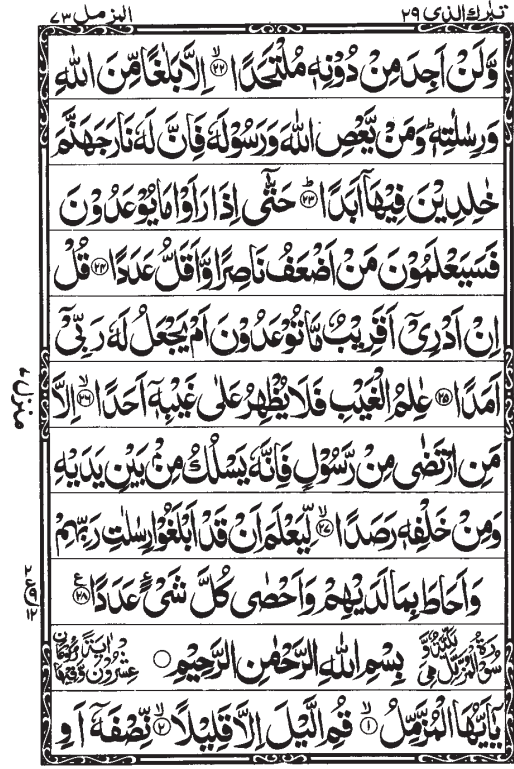 تبٰرك الذی ۲۹
المزمل ۷۳
وَّلَنْ اَجِدَ مِنْ دُوْنِهٖ مُلْتَحَدًا ﴿۲۲﴾ اِلَّا بَلٰغًا مِّنَ اللّٰهِ
وَرِسٰلٰتِهٖ ؕ وَمَنْ يَّعْصِ اللّٰهَ وَرَسُوْلَهٗ فَاِنَّ لَهٗ نَارَ جَهَنَّمَ
خٰلِدِيْنَ فِيْهَاۤ اَبَدًا ﴿۲۳﴾ حَتّٰۤى اِذَا رَاَوْا مَا يُوْعَدُوْنَ
فَسَيَعْلَمُوْنَ مَنْ اَضْعَفُ نَاصِرًا وَّاَقَلُّ عَدَدًا ﴿۲۴﴾ قُلْ
اِنْ اَدْرِيْۤ اَقَرِيْبٌ مَّا تُوْعَدُوْنَ اَمْ يَجْعَلُ لَهٗ رَبِّيْۤ
اَمَدًا ﴿۲۵﴾ عٰلِمُ الْغَيْبِ فَلَا يُظْهِرُ عَلٰى غَيْبِهٖۤ اَحَدًا ﴿۲۶﴾ اِلَّا
مَنِ ارْتَضٰى مِنْ رَّسُوْلٍ فَاِنَّهٗ يَسْلُكُ مِنْۢ بَيْنِ يَدَيْهِ
وَمِنْ خَلْفِهٖ رَصَدًا ﴿۲۷﴾ لِّيَعْلَمَ اَنْ قَدْ اَبْلَغُوْا رِسٰلٰتِ رَبِّهِمْ
وَاَحَاطَ بِمَا لَدَيْهِمْ وَاَحْصٰى كُلَّ شَيْءٍ عَدَدًا ﴿۲۸﴾
سُوْرَةُ الْمُزَّمِّلِ مَكِّيَّةٌ وَّهِيَ بِسْمِ اللّٰهِ الرَّحْمٰنِ الرَّحِيْمِ عِشْرُوْنَ اٰيَةً
يٰۤاَيُّهَا الْمُزَّمِّلُ ﴿۱﴾ قُمِ الَّيْلَ اِلَّا قَلِيْلًا ﴿۲﴾ نِّصْفَهٗۤ اَوِ
منزل ۷